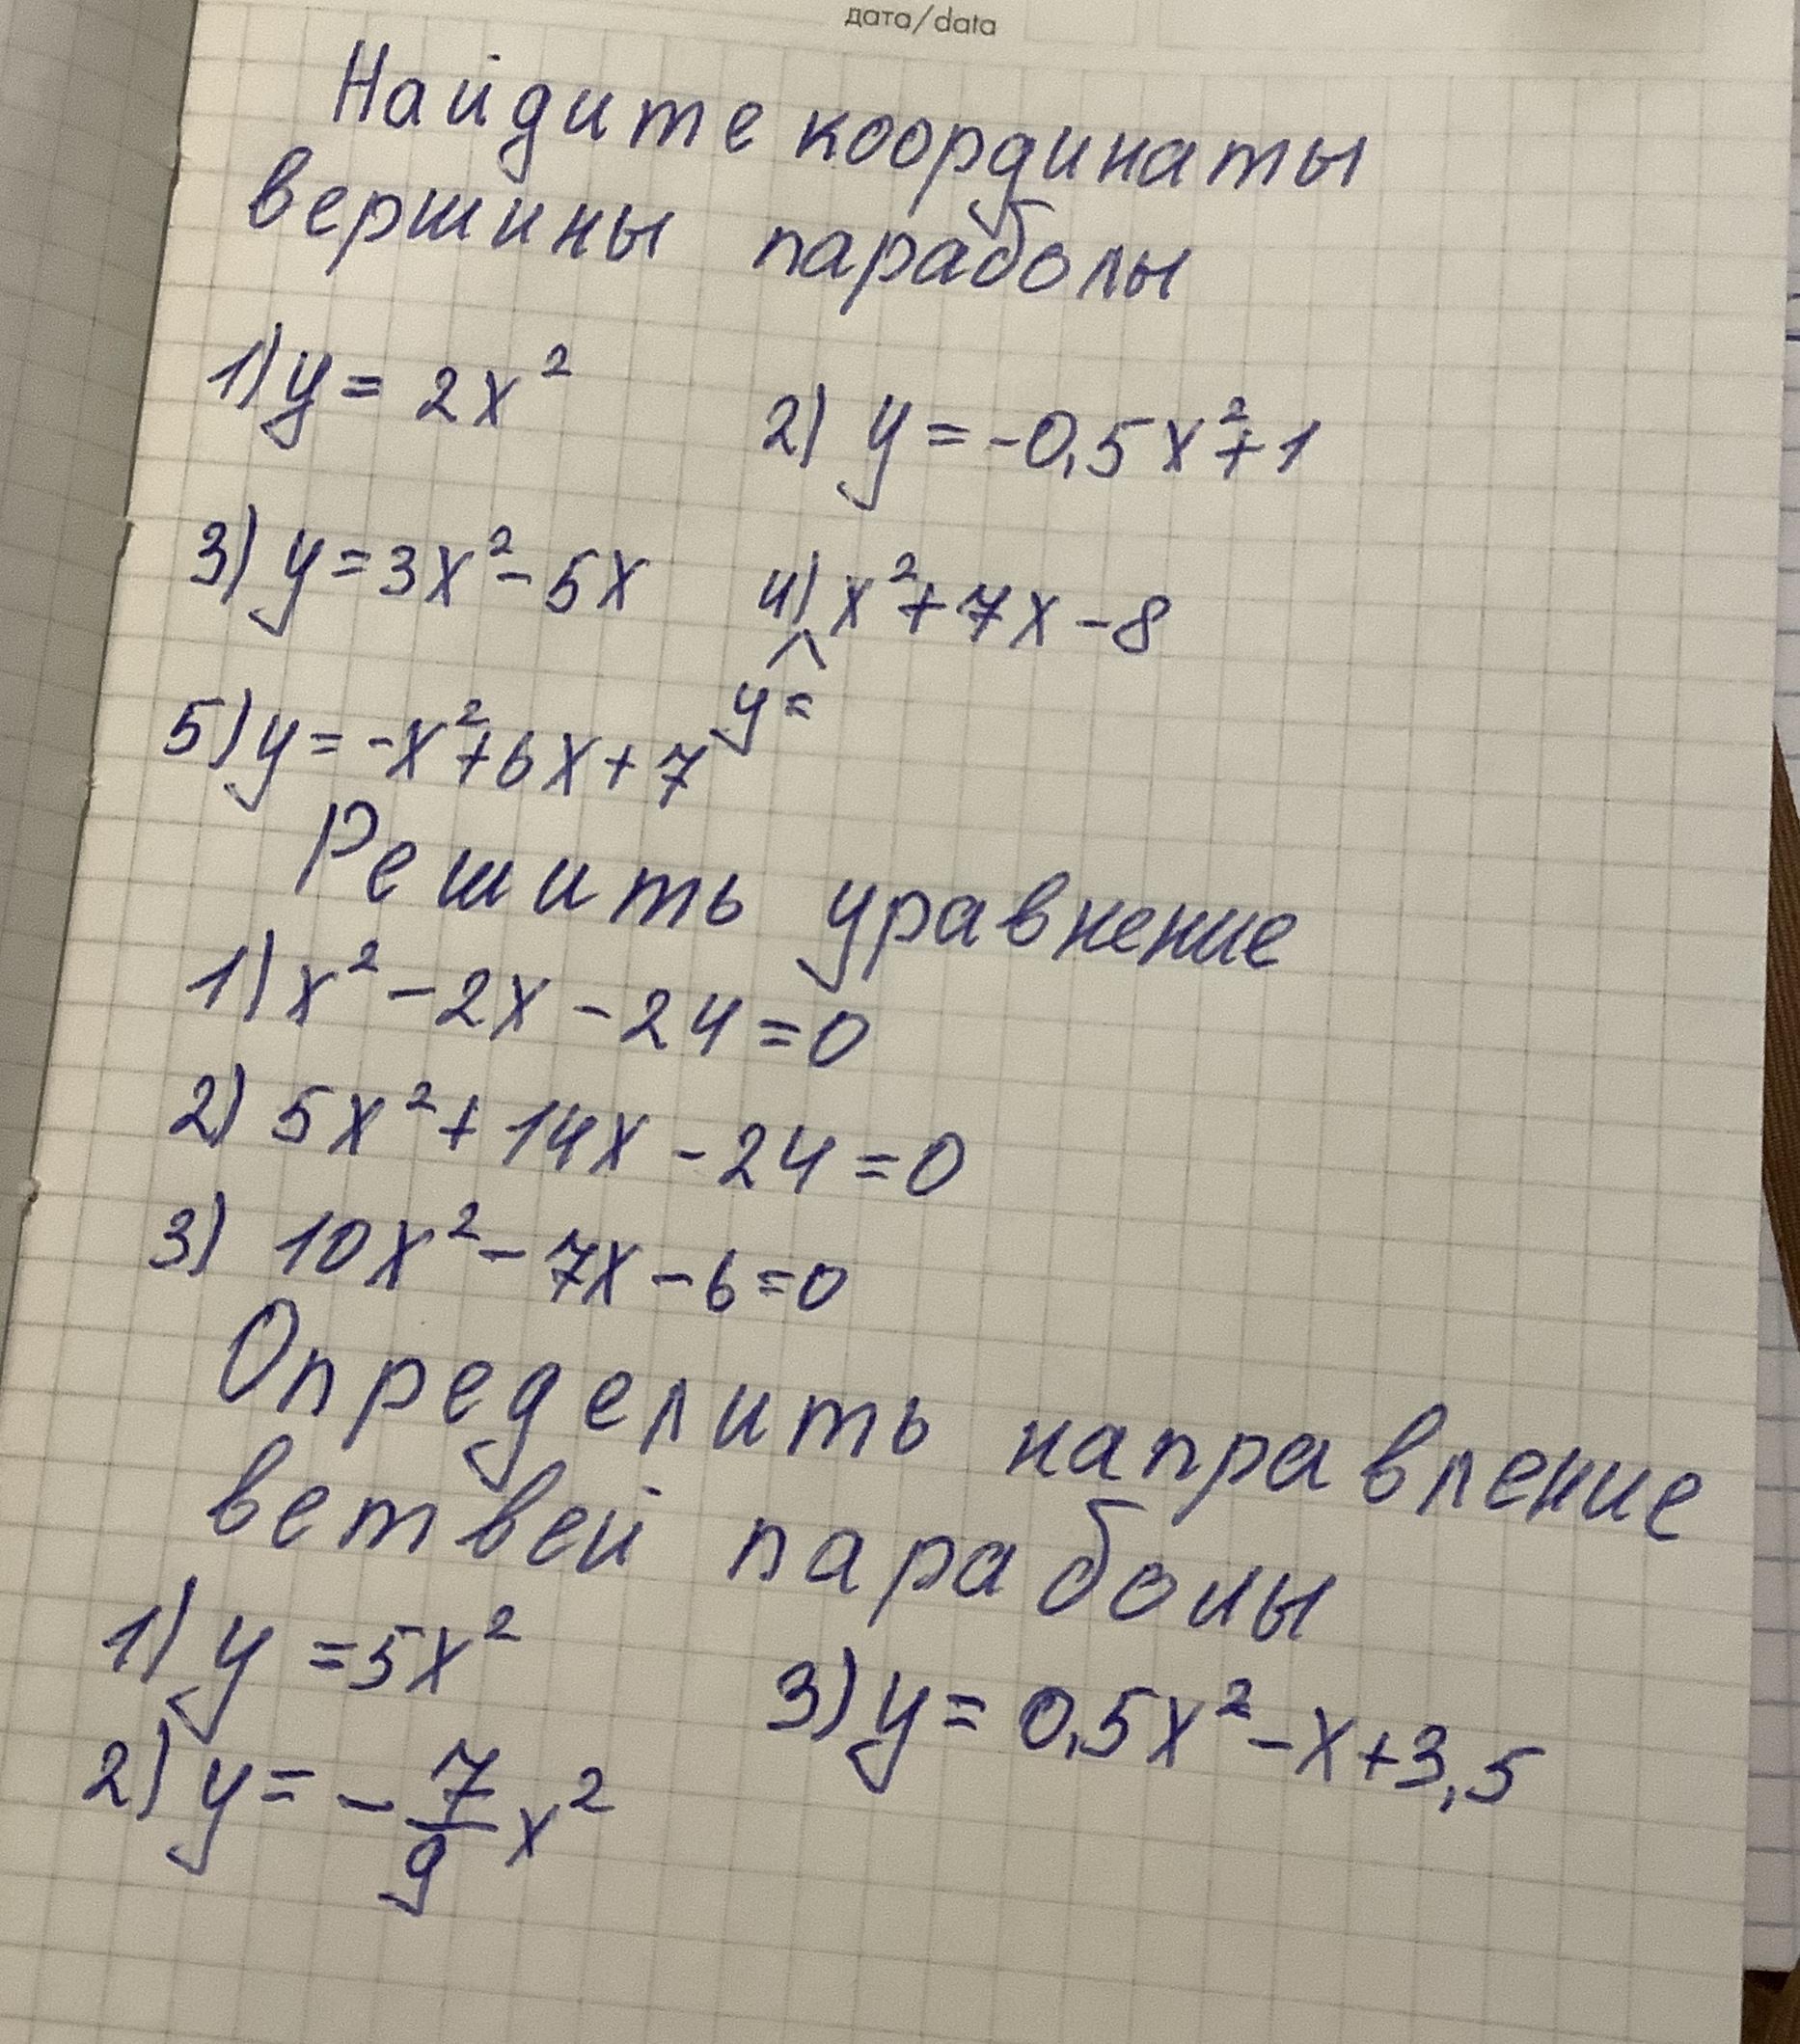 дата/data
Найдите координаты
вершины параболы
1) y = 2x² 2) y = -0,5x²+1
3) y = 3x² - 5x 4) x² + 7x - 8
y =
5) y = -x² + 6x + 7
Решить уравнение
1) x² - 2x - 24 = 0
2) 5x² + 14x - 24 = 0
3) 10x² - 7x - 6 = 0
Определить направление
ветвей параболы
1) y = 5x² 3) y = 0,5x² - x + 3,5
2) y = - 7/9 x²